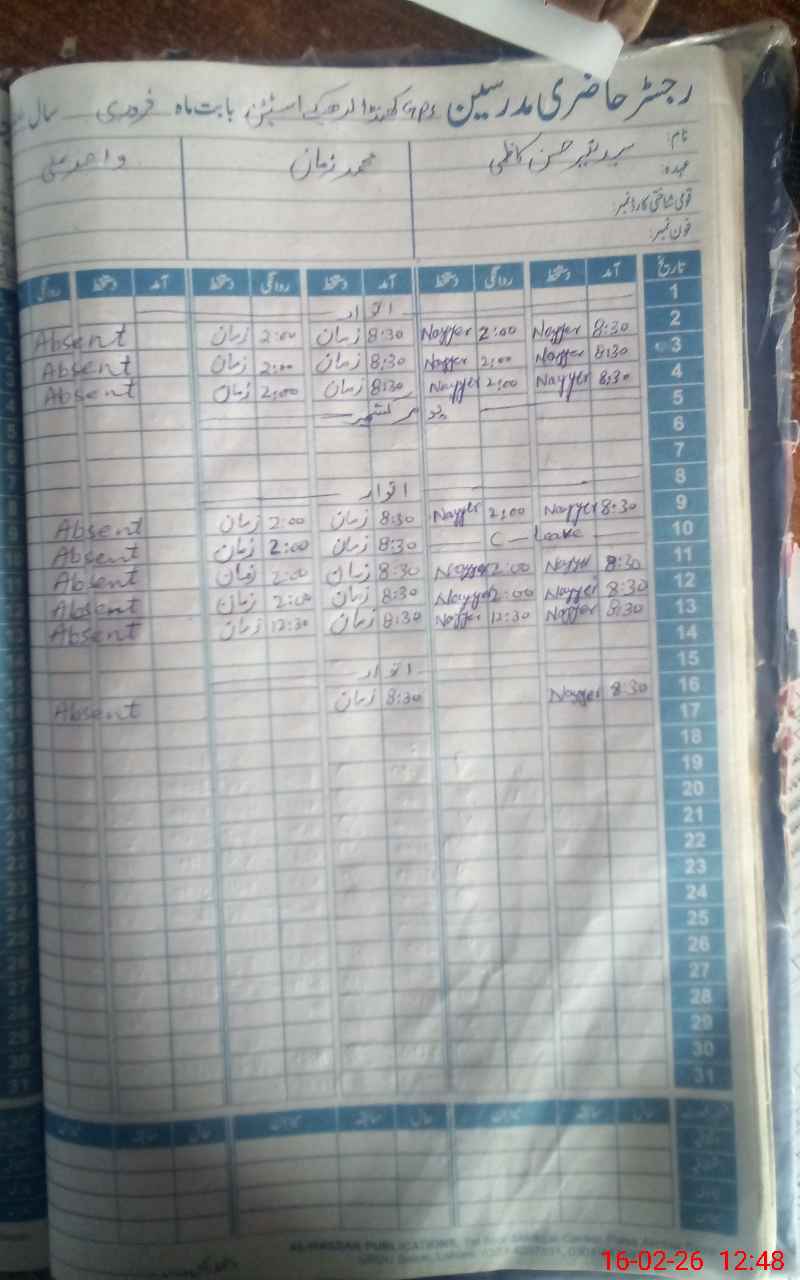 رجسٹر حاضری مدرسین GPS بابت ماہ فروری سال
نام:
عہدہ:
قومی شناختی کارڈ نمبر:
فون نمبر:
محمد زمان
تاریخ آمد دستخط روانگی دستخط آمد دستخط روانگی دستخط آمد دستخط روانگی
1 اتوار
2 8:30 Nayyer 2:00 Nayyer 8:30 زمان 2:00 زمان Absent
3 8:30 Nayyer 2:00 Nayyer 8:30 زمان 2:00 زمان Absent
4 8:30 Nayyer 2:00 Nayyer 8:30 زمان 2:00 زمان Absent
5 کشمیر
6
7
8 اتوار
9 8:30 Nayyer 2:00 Nayyer 8:30 زمان 2:00 زمان Absent
10 C-Leave 8:30 زمان 2:00 زمان Absent
11 8:30 Nayyer 2:00 Nayyer 8:30 زمان 2:00 زمان Absent
12 8:30 Nayyer 2:00 Nayyer 8:30 زمان 2:00 زمان Absent
13 8:30 Nayyer 12:30 Nayyer 8:30 زمان 12:30 زمان Absent
14
15 اتوار
16 8:30 Nayyer 8:30 زمان Absent
17
18
19
20
21
22
23
24
25
26
27
28
29
30
31
16-02-26 12:48